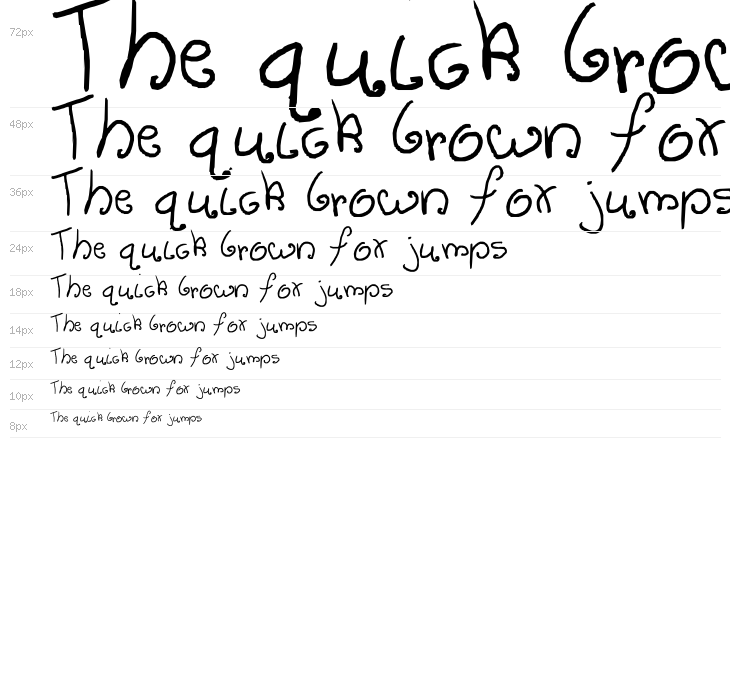 72px The quick broc
48px The quick brown fox
36px The quick brown fox jumps
24px The quick brown fox jumps
18px The quick brown fox jumps
14px The quick brown fox jumps
12px The quick brown fox jumps
10px The quick brown fox jumps
8px The quick brown fox jumps